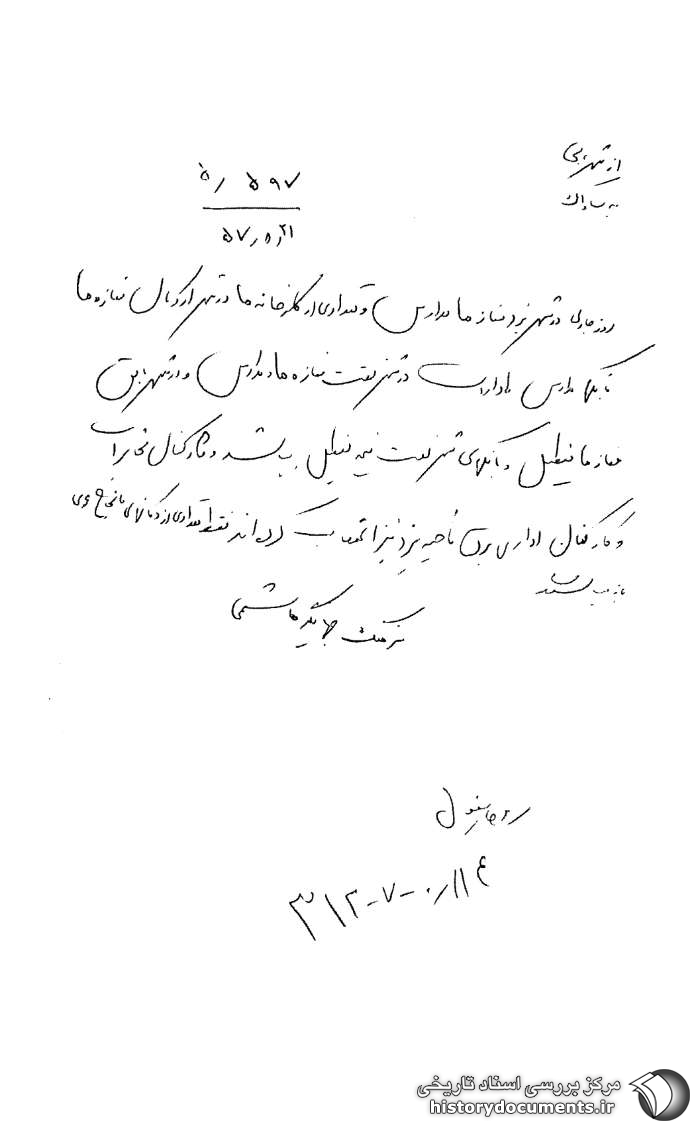 از شهربانی
به ساواک
۵۹۷ / ۵
۵۷/۵/۲۱
روز جاری در شهر یزد مغازه ها مدارس و تعدادی از کارخانه ها در شهر اردکان مغازه ها
بانکها مدارس ادارات در شهر تفت مغازه ها و مدارس و در شهر بافق
مغازه ها تعطیل و بانکهای شهر تفت نیمه تعطیل می باشد و کارکنان مخابرات
و کارکنان اداری برق ناحیه یزد نیز اعتصاب کرده اند فقط تعدادی از دکانهای
باز می باشند
سرهنگ جهانگیر هاشمی
۳۱۲-۷-
مرکز بررسی اسناد تاریخی
historydocuments.ir